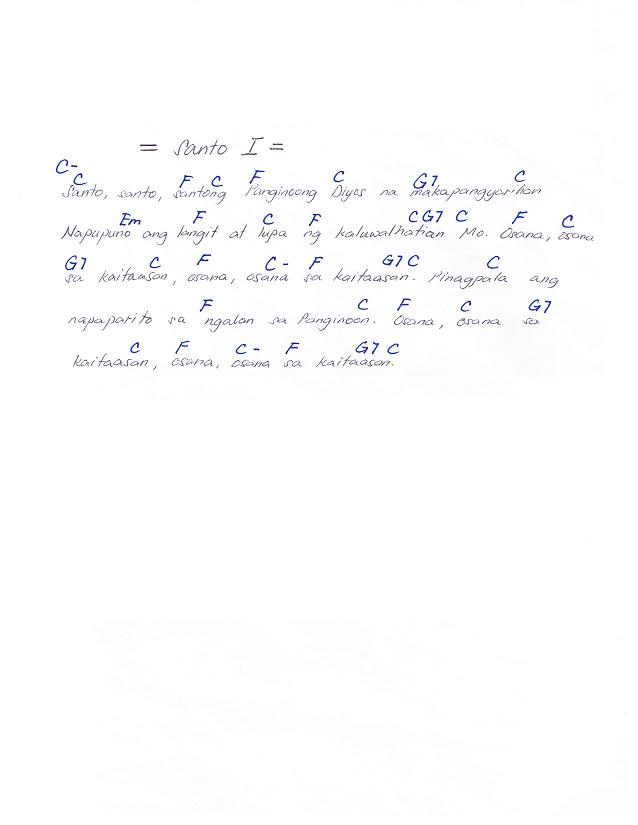 = Santo I =
C-
C F C F C G7 C
Santo, santo, santong Panginoong Diyos na makapangyarihan
Em F C F C G7 C F C
Napupuno ang langit at lupa ng kaluwalhatian Mo. Osana, osana
G7 C F C - F G7 C C
sa kaitaasan, osana, osana sa kaitaasan. Pinagpala ang
F C F C G7
napaparito sa ngalan sa Panginoon. Osana, osana sa
C F C - F G7 C
kaitaasan, osana, osana sa kaitaasan.